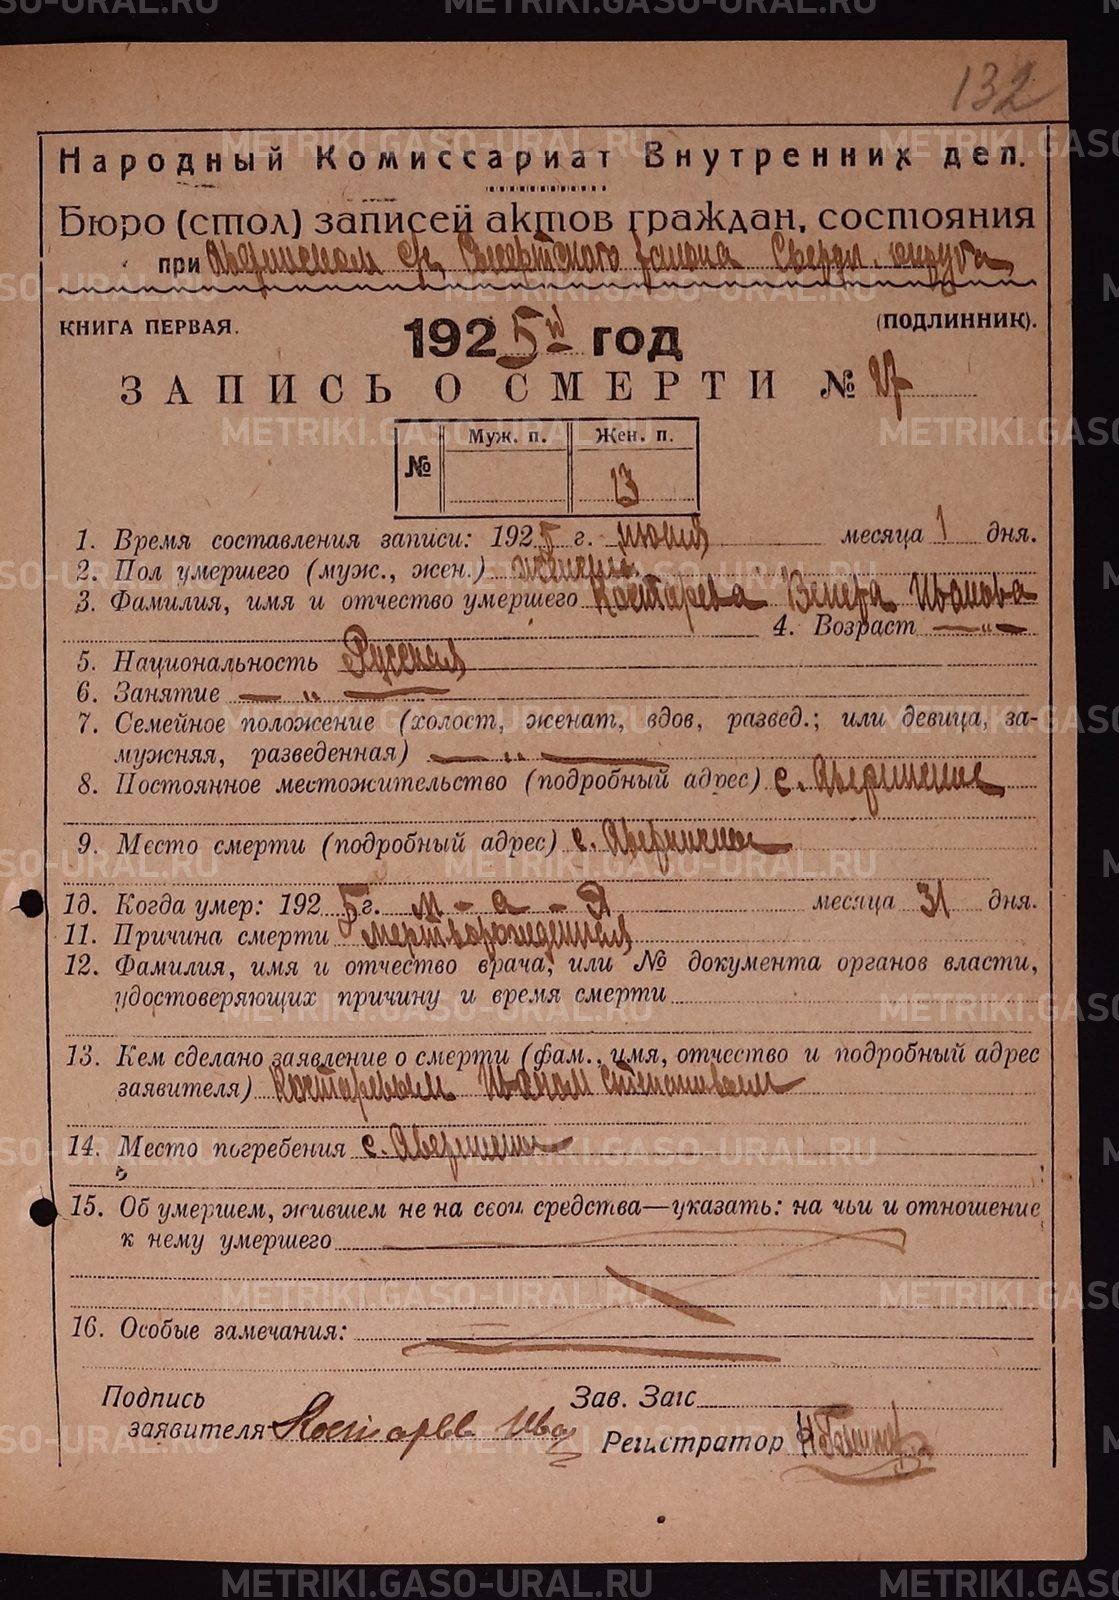 132
Народный Комиссариат Внутренних дел.
Бюро (стол) записей актов граждан. состояния
при Аверинском с/с, Сысертского района Сверд. округа
КНИГА ПЕРВАЯ. (ПОДЛИННИК).
1925й год
ЗАПИСЬ О СМЕРТИ № 27
№ Муж. п. Жен. п.
13
1. Время составления записи: 1925 г. июня месяца 1 дня.
2. Пол умершего (муж., жен.) женский
3. Фамилия, имя и отчество умершего Костарева Венера Иванова
4. Возраст — „ —
5. Национальность Русская
6. Занятие — „ —
7. Семейное положение (холост, женат, вдов, развед.; или девица, за-
мужняя, разведенная) — „ —
8. Постоянное местожительство (подробный адрес) с. Аверинское
9. Место смерти (подробный адрес) с. Аверинское
10. Когда умер: 1925 г. м-а-я месяца 31 дня.
11. Причина смерти мертворожденная
12. Фамилия, имя и отчество врача, или № документа органов власти,
удостоверяющих причину и время смерти
13. Кем сделано заявление о смерти (фам., имя, отчество и подробный адрес
заявителя) Костаревым Иваном
14. Место погребения с. Аверинское
15. Об умершем, жившем не на свои средства—указать: на чьи и отношение
к нему умершего
16. Особые замечания:
Подпись Зав. Загс
заявителя Костарев Ива
Регистратор
METRIKI.GASO-URAL.RU